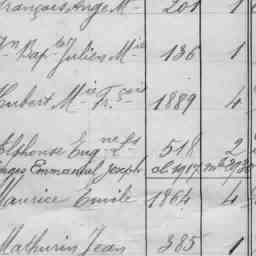 François Ange M^ie 201 1
Jn Bap^te Julien M^ie 136 1
Hubert M^ie Fr^çois 1889 4
Alphonse Eug^ne 518 2
Emmanuel Joseph
Maurice Emile 1864 4
Mathurin Jean 385 1